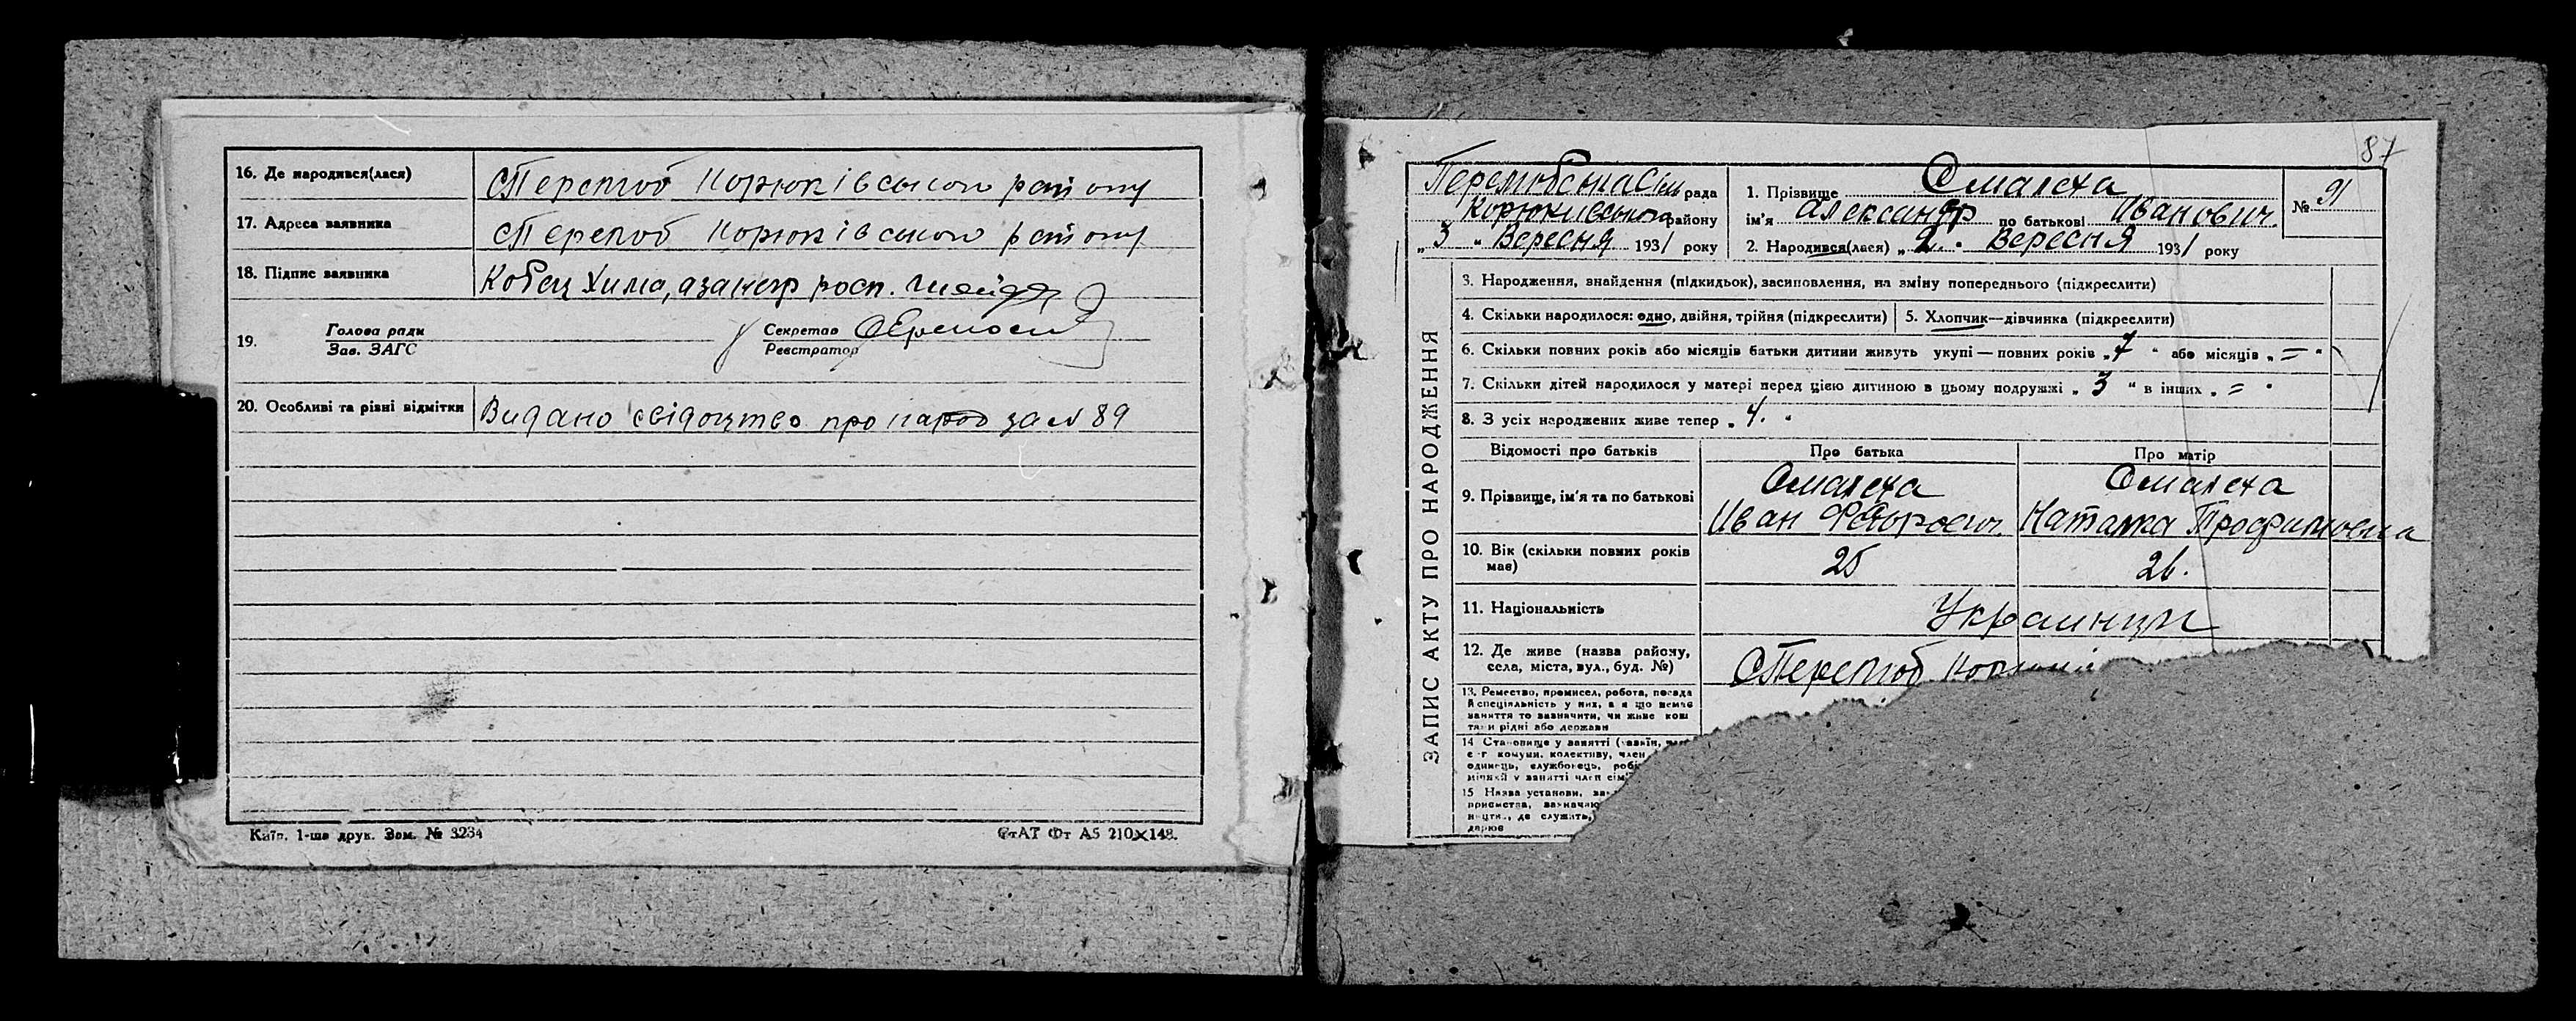 16. Де народився(лася) с Перелюб Корюківського району
17. Адреса заявника с Перелюб Корюківського району
18. Підпис заявника Кобец Хима, а за негр росп.
19. Голова ради
Зав. ЗАГС
Секретар
Реєстратор
20. Особливі та різні відмітки Видано свідоцтво про народ за № 89
Київ, 1-ша друк. Зам. № 3234
СтАТ Фт А5 210×148.
87
Перелюбська сіл рада
Корюкивського району
„3 “ Вересня 1931 року
1. Прізвище Омалеха
ім'я Александр по батькові Иванович.
2. Народився(лася) „2. “ Вересня 1931 року
№ 91
ЗАПИС АКТУ ПРО НАРОДЖЕННЯ
3. Народження, знайдення (підкидьок), засиновлення, на зміну попереднього (підкреслити)
4. Скільки народилося: одно, двійня, трійня (підкреслити)
5. Хлопчик—дівчинка (підкреслити)
6. Скільки повних років або місяців батьки дитини живуть укупі — повних років „7 “ або місяців „ = “
7. Скільки дітей народилося у матері перед цією дитиною в цьому подружжі „ 3 “ в інших „ = “
8. З усіх народжених живе тепер „ 4. “
Відомості про батьків
Про батька
Про матір
9. Прізвище, ім'я та по батькові
Омалеха
Иван
Омалеха
Наталка Трофимовна
10. Вік (скільки повних років має)
25
26.
11. Національність
Украинци
12. Де живе (назва району,
села, міста, вул., буд. №)
с Перелюб
13. Ремество, промисел, робота, посада
й спеціяльність у них, а я що немає
заняття то зазначити, чи живе кош
та и рідні або держави
14 Становище у занятті (
е г комуни, колективу, член
одинець, службовець,
15 Назва установи,